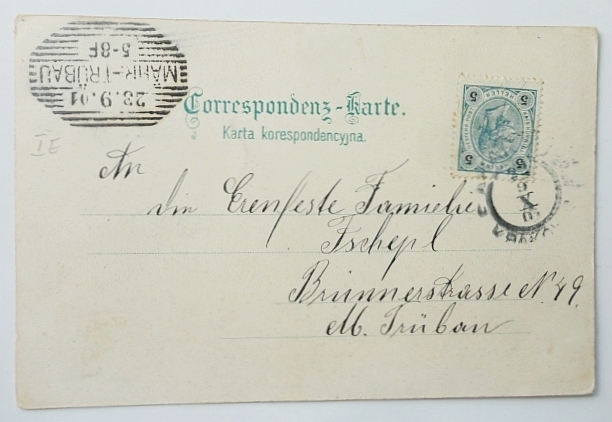 MÄHR.-TRÜBAU
28.9.01
5-8F
Correspondenz-Karte.
Karta korespondencyjna.
IE
5 5
HELLER
5 5
KRAKÓW
An
die Erenfeste Familie
Tschepl
Brünnerstrasse N. 49.
M. Trübau